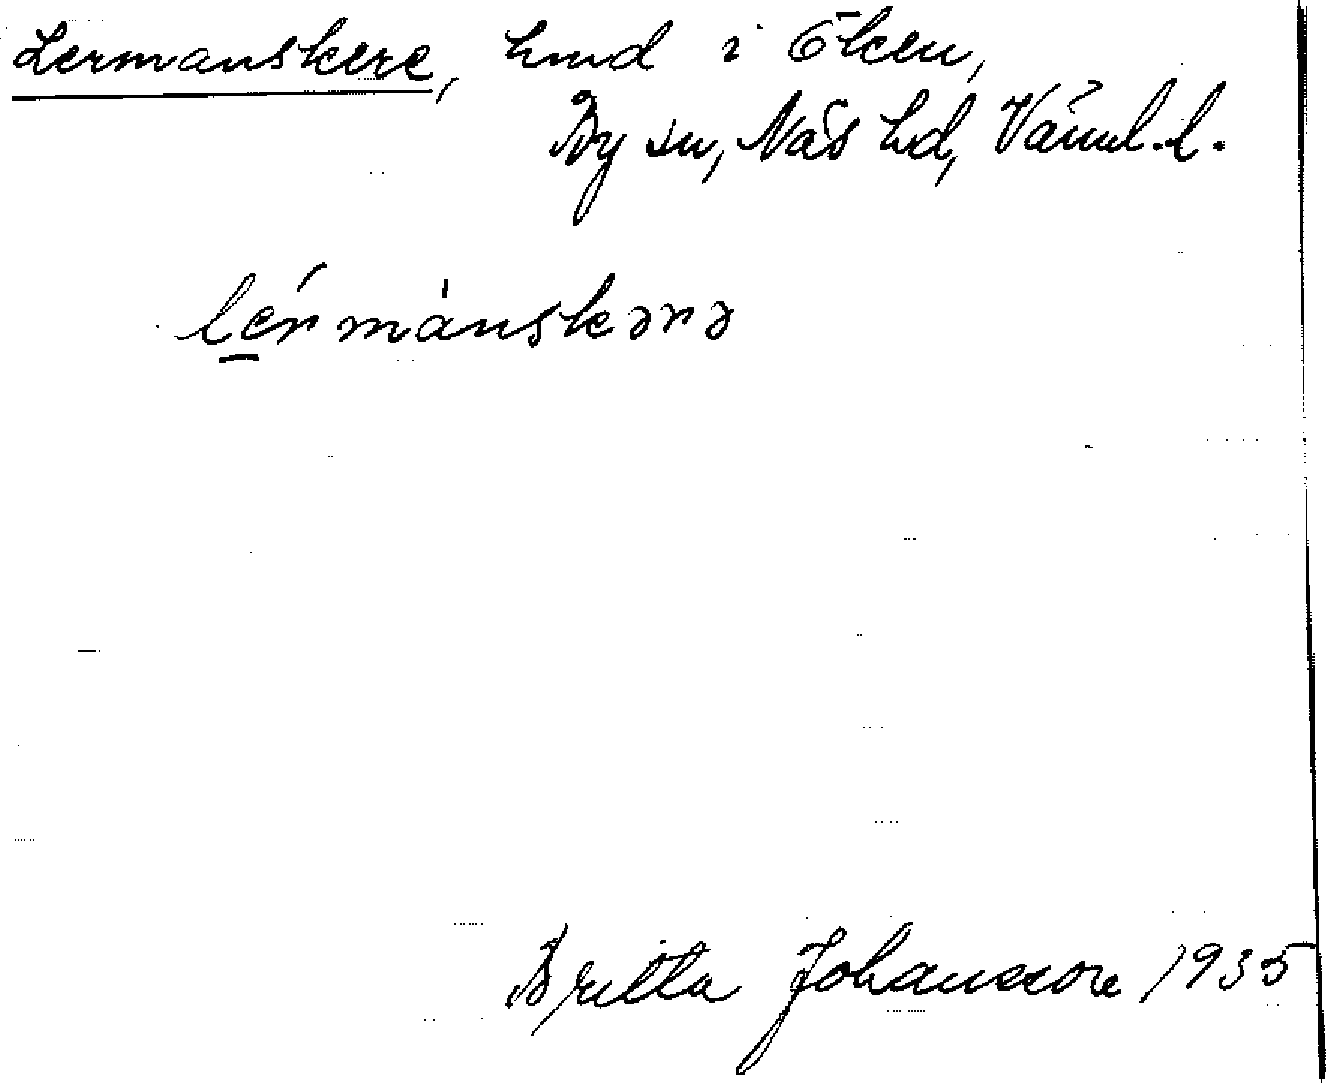 Lermanskere, hmd i Ölsen,
By sn, Näs hd, Värml. l.
lérmànskərə
Britta Johansson 1935